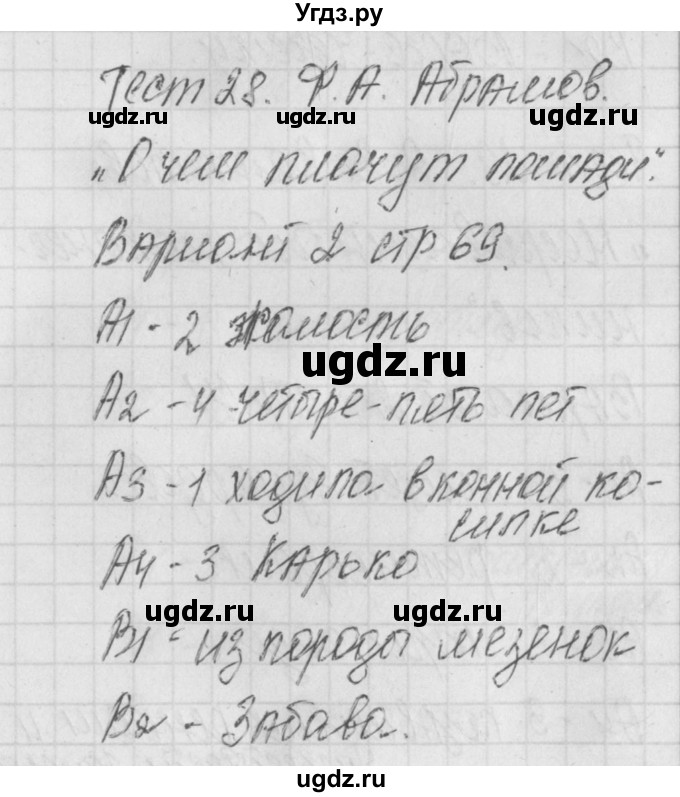 Угдз.ру
Тест 28. Ф.А. Абрамов.
ugdz.ru ugdz.ru ugdz.ru
„О чем плачут лошади".
Вариант 2 стр 69.
А1 - 2 жалость
ugdz.ru
А2 - 4 четыре-пять лет
А3 - 1 ходила в конной ко-
силке
А4 - 3 Карько
ugdz.ru ugdz.ru
В1 - из породы мезенок
В2 - Забава.
ugdz.ru